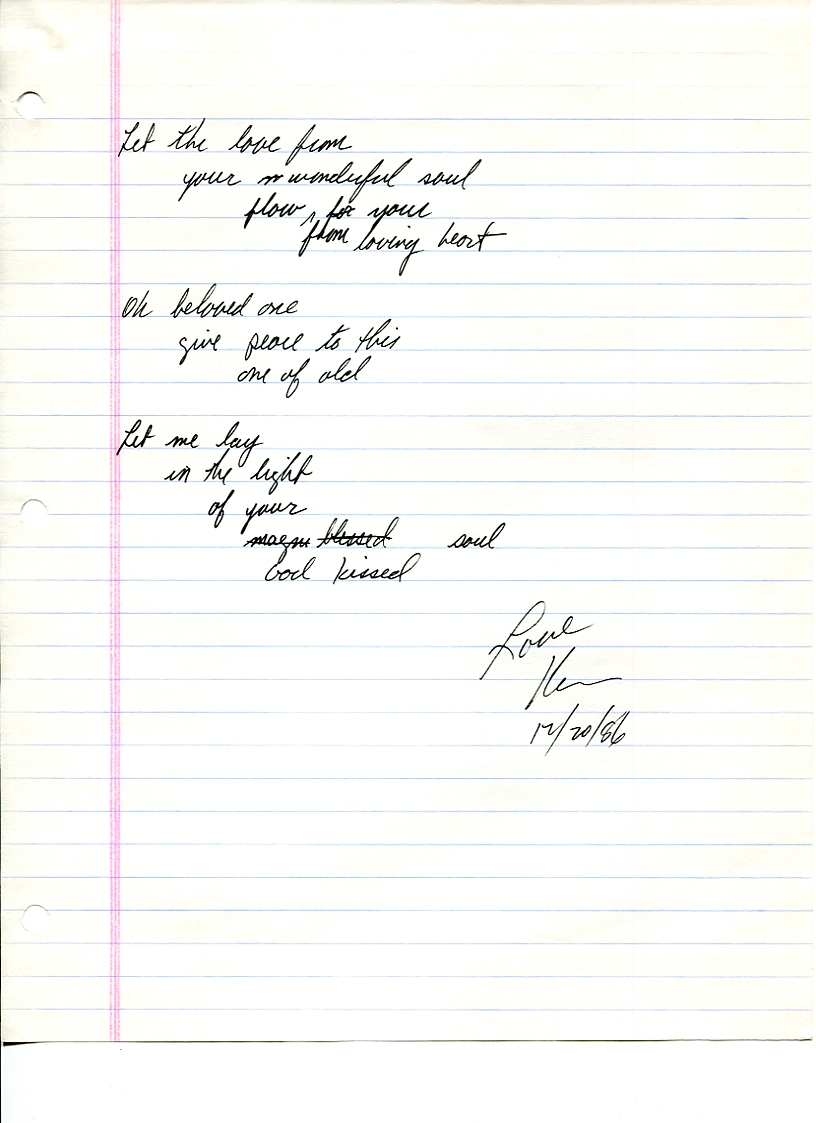 Let the love from
your wonderful soul
flow, for your
from loving heart
Oh beloved one
give peace to this
one of old
Let me lay
in the light
of your
magni blessed soul
God kissed
Love
Ken
12/20/86